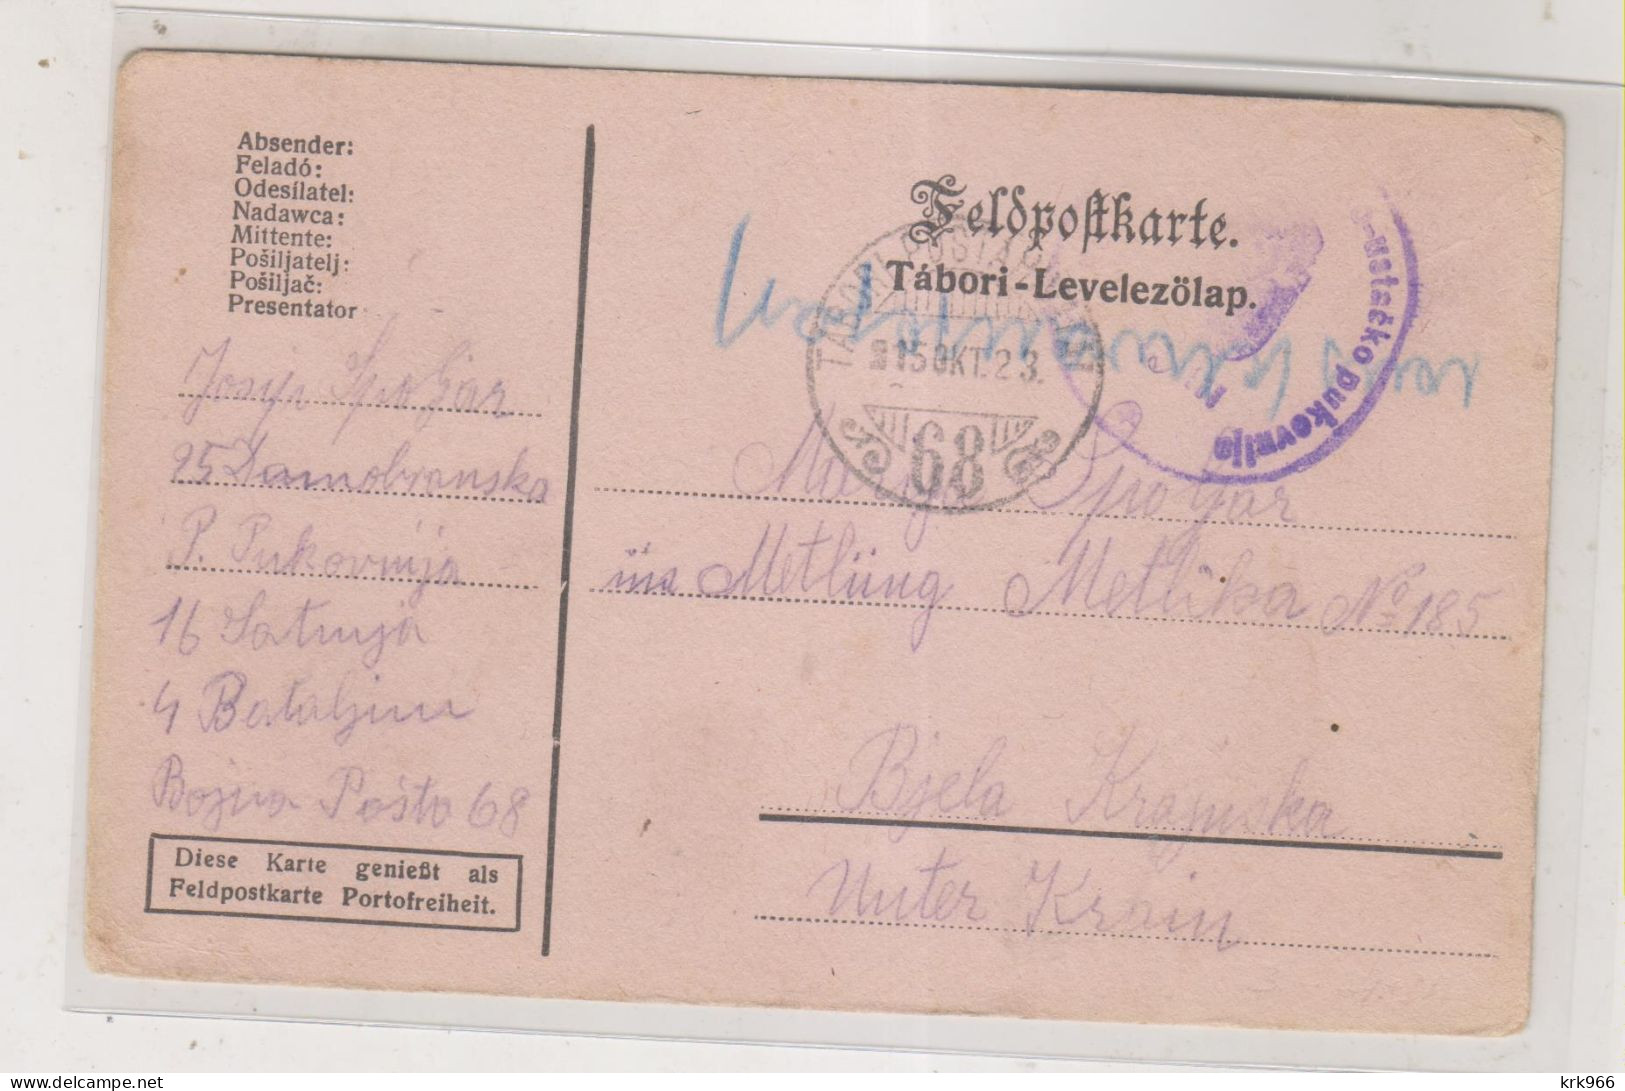 Absender:
Feladó:
Odesílatel:
Nadawca:
Mittente:
Pošiljatelj:
Pošiljač:
Presentator
Josip Špoljar
25 Domobranska
P. Pukovnija
16 Satnija
4 Bataljun
Bojna Pošta 68
Diese Karte genießt als
Feldpostkarte Portofreiheit.
Feldpostkarte.
Tábori-Levelezőlap.
TÁBORI POSTA
915 OKT. 23.
68
-ustaško pukovnija
Marija Špoljar
Metlüng Metlika No 185
Bjela Krajnska
Unter Krain
krk966